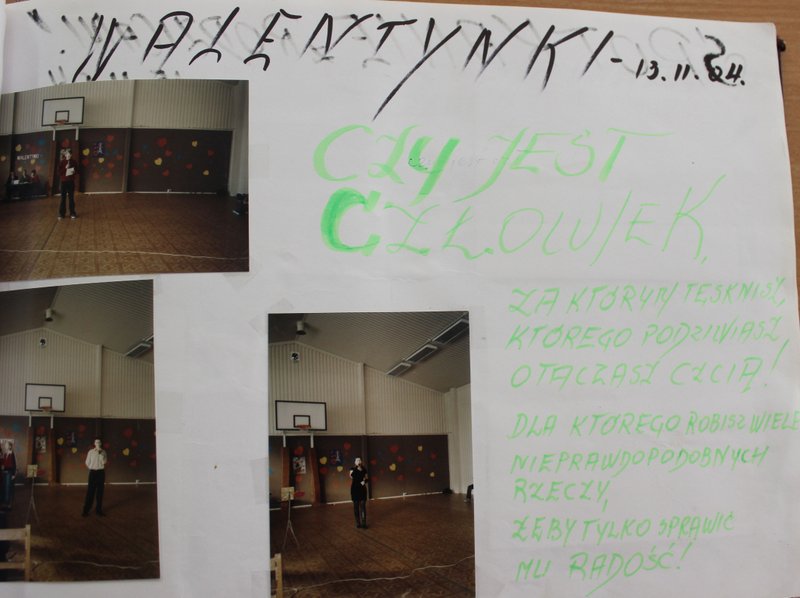 WALENTYNKI - 13.11.04.
CZY JEST
CZŁOWIEK,
ZA KTÓRYM TĘSKNISZ,
KTÓREGO PODZIWIASZ,
OTACZASZ CZCIĄ!
DLA KTÓREGO ROBISZ WIELE
NIEPRAWDOPODOBNYCH
RZECZY,
ŻEBY TYLKO SPRAWIĆ
MU RADOŚĆ!
WALENTYNKI